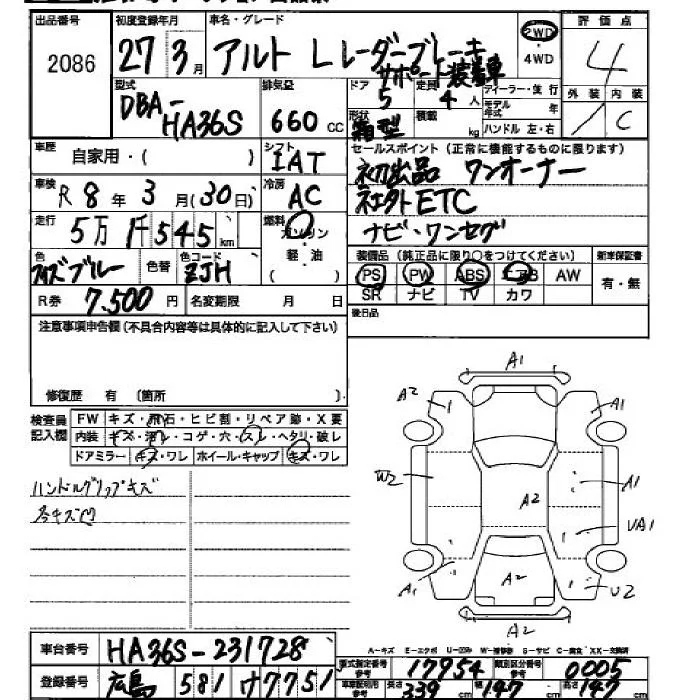 出品番号 2086
初度登録年月 27年3月
車名・グレード アルト Lレーダーブレーキサポート装着車
2WD・4WD
評価点 4
外装 / 内装 C
型式 DBA-HA36S
排気量 660 cc
ドア 5
定員 4人
ディーラー・並行
モデル年式 年
形状 箱型
積載 kg
ハンドル 左・右
車歴 自家用・( )
シフト IAT
セールスポイント(正常に機能するものに限ります)
初出品 ワンオーナー
社外ETC
ナビ・ワンセグ
車検 R8年3月(30日)
冷房 AC
走行 5万1千545km
燃料 ガソリン・軽油・( )
色 ブルー 色替
色コード ZJH
装備品(純正品に限り○をつけてください)
PS PW ABS エアB AW
SR ナビ TV カワ
新車保証書 有・無
R券 7,500円
名変期限 月 日
後日品
注意事項申告欄(不具合内容等は具体的に記入して下さい)
修復歴 有 〔箇所 〕
検査員記入欄
FW キズ・飛石・ヒビ割・リペア跡・X要
内装 キズ・汚レ・コゲ・穴・スレ・ヘタリ・破レ
ドアミラー キズ・ワレ ホイール・キャップ キズ・ワレ
ハンドルグリップキズ
各キズ凹
A1
A2
A1
W2
A1
A2
UA1
A1
A2
U2
A2
A-キズ E-エクボ U-凹み W-補修跡 S-サビ C-腐食 XX-交換済
車台番号 HA36S-231728
登録番号 広島 581 ケ7751
型式指定番号 17954
類別区分番号 0005
長さ 339 cm 幅 147 cm 高さ 147 cm